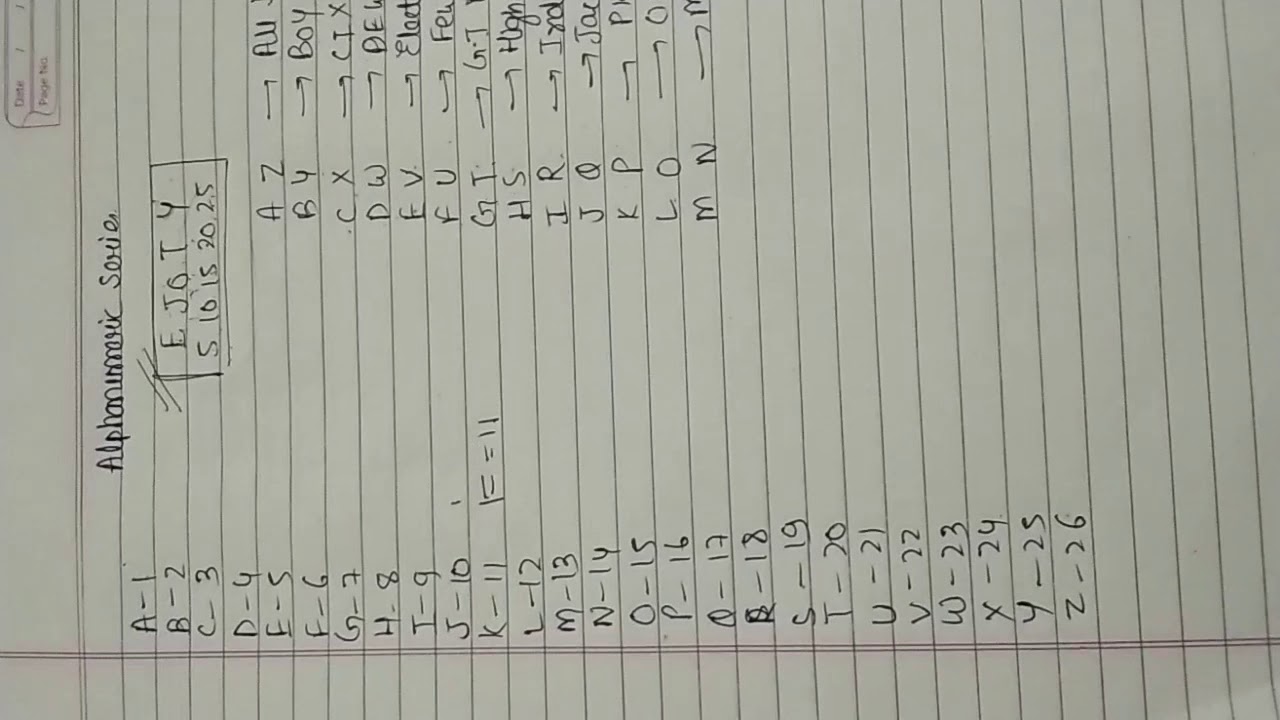 Date / /
Page No.
Alphanumeric Series
E J O T Y
5 10 15 20 25
A-1
B-2
C-3
D-4
E-5
F-6
G-7
H-8
I-9
J-10
K-11 K = 11
L-12
M-13
N-14
O-15
P-16
Q-17
R-18
S-19
T-20
U-21
V-22
W-23
X-24
Y-25
Z-26
A Z → All
B Y → Boy
C X → CIX
D W → DEW
E V →
F U →
G T → GT
H S →
I R →
J Q →
K P →
L O →
M N →